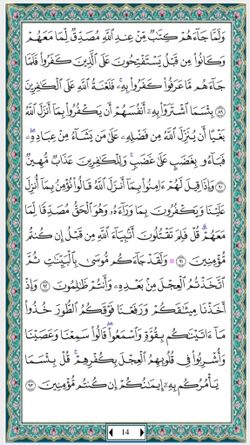 وَلَمَّا جَآءَهُمْ كِتَٰبٌ مِّنْ عِندِ ٱللَّهِ مُصَدِّقٌ لِّمَا مَعَهُمْ
وَكَانُوا۟ مِن قَبْلُ يَسْتَفْتِحُونَ عَلَى ٱلَّذِينَ كَفَرُوا۟ فَلَمَّا
جَآءَهُم مَّا عَرَفُوا۟ كَفَرُوا۟ بِهِۦ ۚ فَلَعْنَةُ ٱللَّهِ عَلَى ٱلْكَٰفِرِينَ
٨٩ بِئْسَمَا ٱشْتَرَوْا۟ بِهِۦٓ أَنفُسَهُمْ أَن يَكْفُرُوا۟ بِمَآ أَنزَلَ ٱللَّهُ
بَغْيًا أَن يُنَزِّلَ ٱللَّهُ مِن فَضْلِهِۦ عَلَىٰ مَن يَشَآءُ مِنْ عِبَادِهِۦ ۖ
فَبَآءُو بِغَضَبٍ عَلَىٰ غَضَبٍ ۚ وَلِلْكَٰفِرِينَ عَذَابٌ مُّهِينٌ
٩٠ وَإِذَا قِيلَ لَهُمْ ءَامِنُوا۟ بِمَآ أَنزَلَ ٱللَّهُ قَالُوا۟ نُؤْمِنُ بِمَآ أُنزِلَ
عَلَيْنَا وَيَكْفُرُونَ بِمَا وَرَآءَهُۥ وَهُوَ ٱلْحَقُّ مُصَدِّقًا لِّمَا
مَعَهُمْ ۗ قُلْ فَلِمَ تَقْتُلُونَ أَنۢبِيَآءَ ٱللَّهِ مِن قَبْلُ إِن كُنتُم
مُّؤْمِنِينَ ٩١ ۞ وَلَقَدْ جَآءَكُم مُّوسَىٰ بِٱلْبَيِّنَٰتِ ثُمَّ
ٱتَّخَذْتُمُ ٱلْعِجْلَ مِنۢ بَعْدِهِۦ وَأَنتُمْ ظَٰلِمُونَ ٩٢ وَإِذْ
أَخَذْنَا مِيثَٰقَكُمْ وَرَفَعْنَا فَوْقَكُمُ ٱلطُّورَ خُذُوا۟
مَآ ءَاتَيْنَٰكُم بِقُوَّةٍ وَٱسْمَعُوا۟ ۖ قَالُوا۟ سَمِعْنَا وَعَصَيْنَا
وَأُشْرِبُوا۟ فِى قُلُوبِهِمُ ٱلْعِجْلَ بِكُفْرِهِمْ ۚ قُلْ بِئْسَمَا
يَأْمُرُكُم بِهِۦٓ إِيمَٰنُكُمْ إِن كُنتُم مُّؤْمِنِينَ ٩٣
14